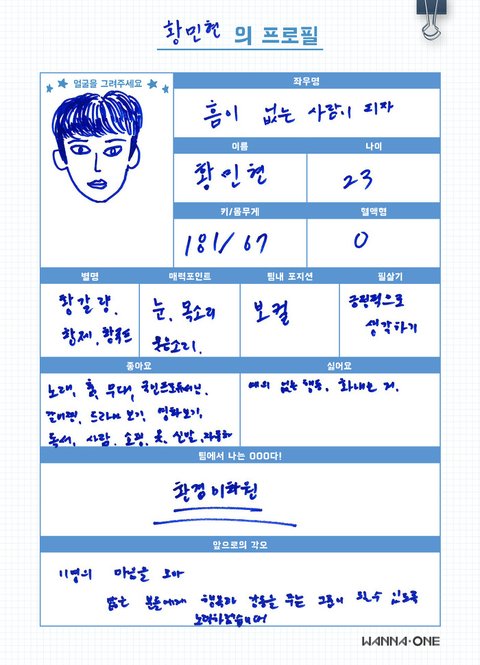 황민현 의 프로필
얼굴을 그려주세요
좌우명
흠이 없는 사람이 되자
이름
나이
황민현
23
키/몸무게
혈액형
181/67
O
별명
매력포인트
팀내 포지션
필살기
황갈량,
황제, 황국프
눈, 목소리
웃음소리.
보컬
긍정적으로
생각하기
좋아요
싫어요
노래, 춤, 무대, 국민프로듀서님,
드라마 보기, 영화보기,
독서, 사람, 쇼핑, 옷, 신발,
예의 없는 행동, 화내는 거.
팀에서 나는 OOO다!
환경미화원
앞으로의 각오
11명의 마음을 모아
많은 분들에게 행복과 감동을 주는 그룹이 될 수 있도록
노력하겠습니다
WANNA·ONE